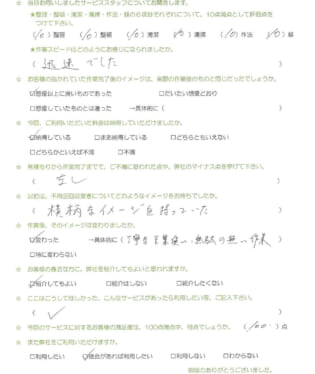 ☆ 当日お伺いしましたサービススタッフについてお聞きします。
★整理・整頓・清潔・清掃・作法・躾の6項目それぞれについて、10点満点として評価点をつけて下さい。
(10)整理 (10)整頓 (10)清潔 (10)清掃 (10)作法 (10)躾
★作業スピードはどのようにお感じになられましたか。
( 迅速でした )
☆ お客様の描かれていた作業完了後のイメージは、実際の作業後のものと同じだったでしょうか。
☑想像以上に良いものであった □だいたい想像どおり
□想像していたものとは違った →具体的に( )
☆ 今回、ご利用いただいた料金は納得していただけましたか。
☑納得している □まあ納得している □どちらともいえない
□どちらかといえば不満 □不満
☆ 見積もりから作業完了までで、ご不満に思われた点や、弊社のマイナス点を挙げて下さい。
( なし )
☆ 以前は、不用品回収業者についてどのようなイメージをお持ちでしたか。
( 横柄なイメージを持っていた )
☆ 作業後、そのイメージは変わりましたか。
☑変わった →具体的に(丁寧な言葉使い、無駄の無い作業)
□特に変わらない
☆ お客様の身近な方に、弊社を紹介してもよいと思われますか。
☑紹介してもよい □紹介はしない □紹介したくない
☆ ここはこうしてほしかった、こんなサービスがあったら利用したい等、ご記入下さい。
( )
☆ 今回のサービスに対するお客様の満足度は、100点満点中、何点でしょうか。 (100)点
☆ また弊社をご利用いただけますか。
□利用したい ☑機会があれば利用したい □利用しない □わからない
御協力ありがとうございました。